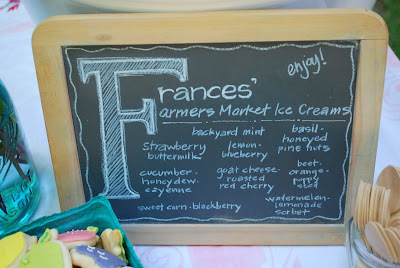 enjoy!
Frances'
Farmers Market Ice Creams
backyard mint
Strawberry
buttermilk
lemon-
blueberry
basil-
honeyed
pine nuts
cucumber-
honeydew-
cayenne
goat cheese-
roasted
red cherry
beet-
orange-
poppy
seed
sweet corn-blackberry
watermelon-
lemonade
sorbet